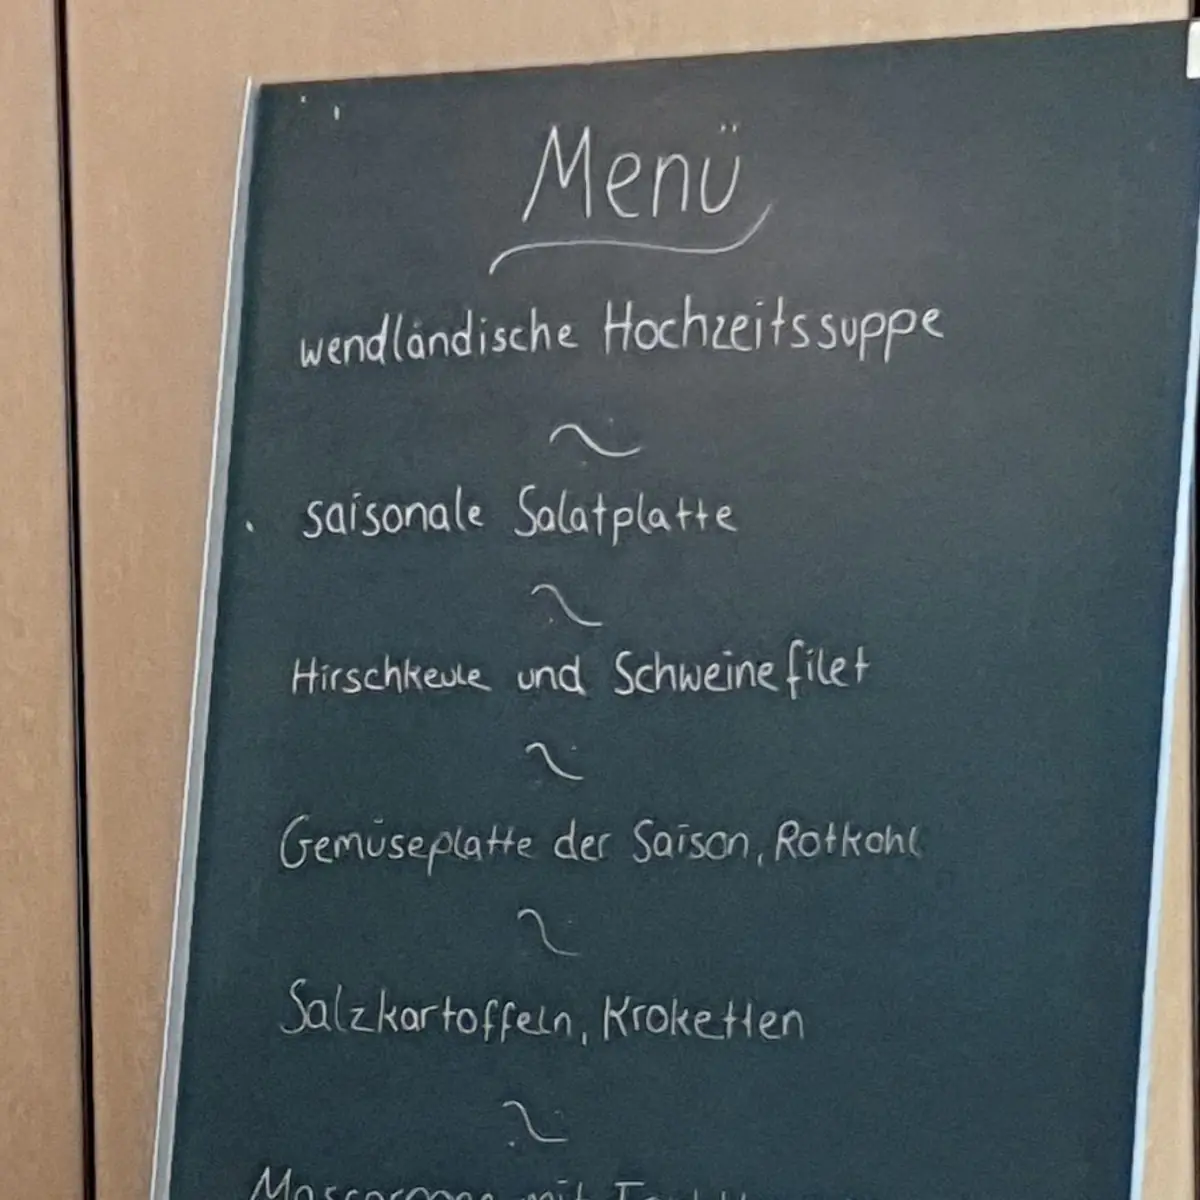 Menü
wendländische Hochzeitssuppe
~
saisonale Salatplatte
~
Hirschkeule und Schweinefilet
~
Gemüseplatte der Saison, Rotkohl
~
Salzkartoffeln, Kroketten
~
mit